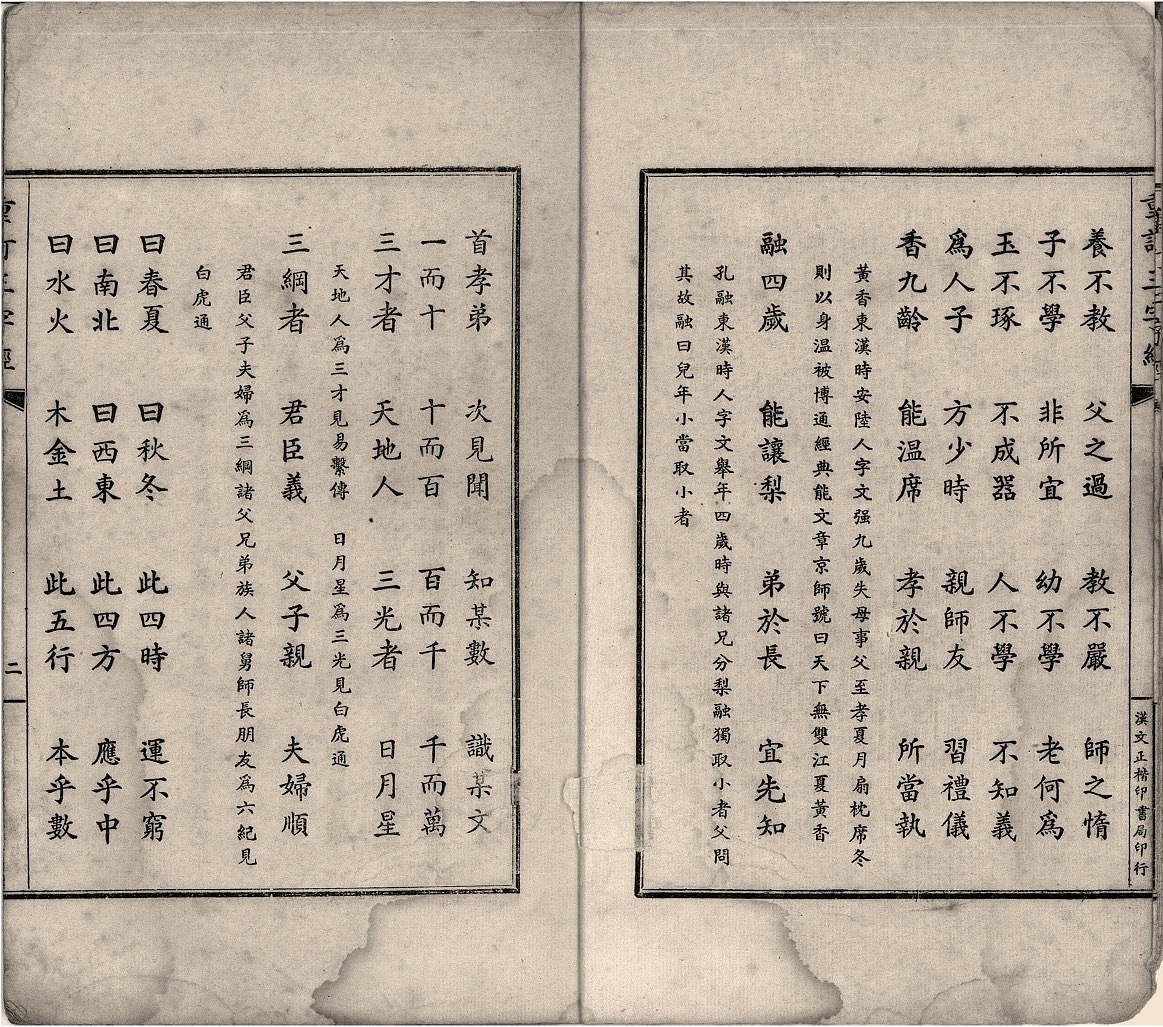 重訂三字經
漢文正楷印書局印行
養不教 父之過 教不嚴 師之惰
子不學 非所宜 幼不學 老何爲
玉不琢 不成器 人不學 不知義
爲人子 方少時 親師友 習禮儀
香九齡 能温席 孝於親 所當執
黃香東漢時安陸人字文强九歲失母事父至孝夏月扇枕席冬
則以身温被博通經典能文章京師號曰天下無雙江夏黃香
融四歲 能讓梨 弟於長 宜先知
孔融東漢時人字文舉年四歲時與諸兄分梨融獨取小者父問
其故融曰兒年小當取小者
首孝弟 次見聞 知某數 識某文
一而十 十而百 百而千 千而萬
三才者 天地人 三光者 日月星
天地人爲三才見易繫傳 日月星爲三光見白虎通
三綱者 君臣義 父子親 夫婦順
君臣父子夫婦爲三綱諸父兄弟族人諸舅師長朋友爲六紀見
白虎通
曰春夏 曰秋冬 此四時 運不窮
曰南北 曰西東 此四方 應乎中
曰水火 木金土 此五行 本乎數
重訂三字經 二